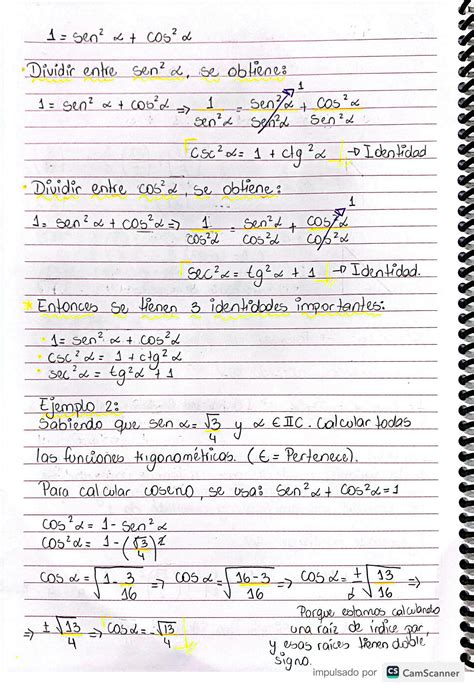 1 = sen² α + cos² α
• Dividir entre sen² α, se obtiene:
1 = sen² α + cos² α ⇒ 1/sen² α = sen² α/sen² α + cos² α/sen² α
1
csc² α = 1 + ctg² α → Identidad
• Dividir entre cos² α, se obtiene:
1 = sen² α + cos² α ⇒ 1/cos² α = sen² α/cos² α + cos² α/cos² α
1
sec² α = tg² α + 1 → Identidad.
* Entonces se tienen 3 identidades importantes:
• 1 = sen² α + cos² α
• csc² α = 1 + ctg² α
• sec² α = tg² α + 1
Ejemplo 2:
Sabiendo que sen α = √3/4 y α ∈ IIC. Calcular todas
las funciones trigonométricas. (∈ = Pertenece).
Para calcular coseno, se usa: sen² α + cos² α = 1
cos² α = 1 - sen² α
cos² α = 1 - (√3/4)²
cos α = √(1 - 3/16) ⇒ cos α = √(16-3/16) ⇒ cos α = ± √(13/16) ⇒
⇒ ± √13/4 ⇒ cos α = -√13/4
Porque estamos calculando
una raíz de índice par
y esas raíces tienen doble
signo.
impulsado por CS CamScanner